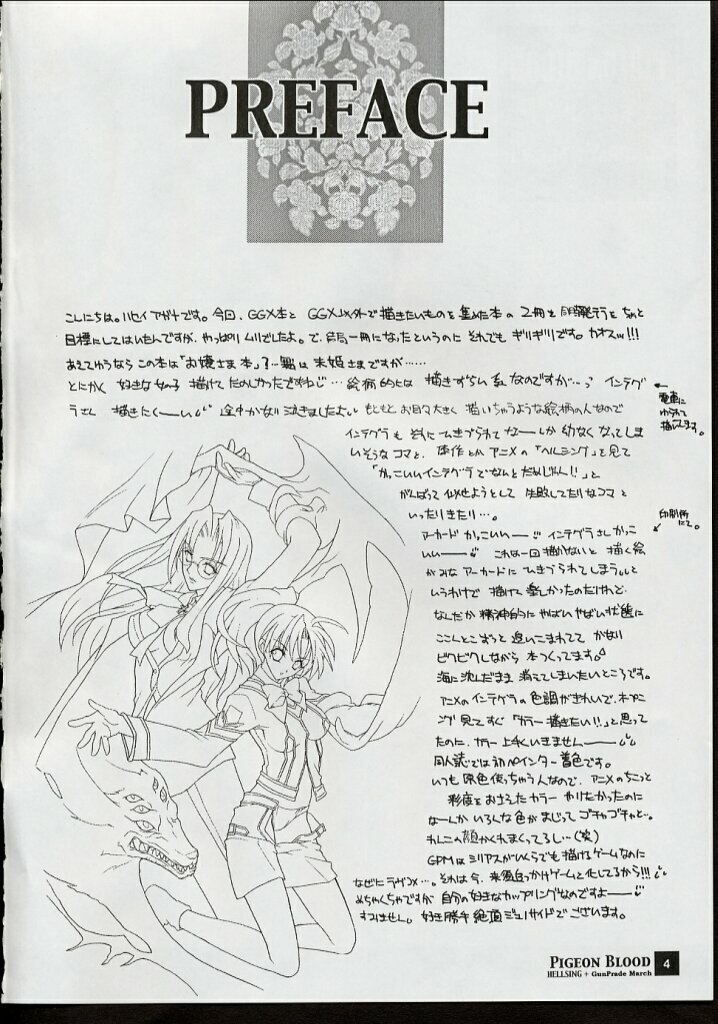 PREFACE
こんにちは。ハセイアガナです。今回、GGX本と GGX以外で描きたいものを集めた本の2冊を
目標にしてはいたんですが、やっぱりムリでしたよ。で、結局一冊になったというのに それでもギリギリです。カオスッ!!!
あえてゆうなら この本は「お嬢さま本」?…
とにかく 好きな女の子 描けて たのしかったですねじ… 描きずらい系なのですが… インテグ
ラさん 描きたくーい 途中かなり泣きましたよ もともと お目々大きく 描いちゃうような絵柄の人なので
インテグラも それに ひきづられて なーんか 幼なくなってしま
いそうなコマと、原作とかアニメの「ヘルシング」を見て
「かっこいいインテグラでなんとだめじゃん!!」と
がんばって 似せようとして 失敗してたりなコマと
いったりきたり…。
電車に
ゆられて
描いてます。
印刷所
にて。
アーカード かっこいいー インテグラさん かっこ
いいー これは一回描かないと 描く絵
がみな アーカードに ひきづられてしまう と
いうわけで 描けて 楽しかったのだけれど、
なんだか 精神的に やばい やばい 状態に
とことん 追いこまれてて かなり
ビクビクしながら 本つくってます。
海に沈んだまま 消えてしまいたいところです。
アニメの インテグラ の 色調がきれいで、オープニ
ング 見て すぐ 「カラー描きたい!!」と思って
たのに、カラー 上手くいきませんー
同人誌では初ペインター着色です。
いつも 原色使っちゃう人なので、アニメの ちょこっと
彩度を おさえたカラー やりたかったのに
なーんか いろんな色が まじって ゴチャゴチャと…。
わんこの顔かくれまくってるし…(笑)
GPMは シリアスがいくらでも描けるゲームなのに
なぜにラヴコメ…。それは今、来須追っかけゲームと化してるから!!!
めちゃくちゃですが 自分の好きなカップリングなのですよー
すみません。好き勝手 絶頂 ジェノサイドでございます。
PIGEON BLOOD
HELLSING + GunPrade March
4